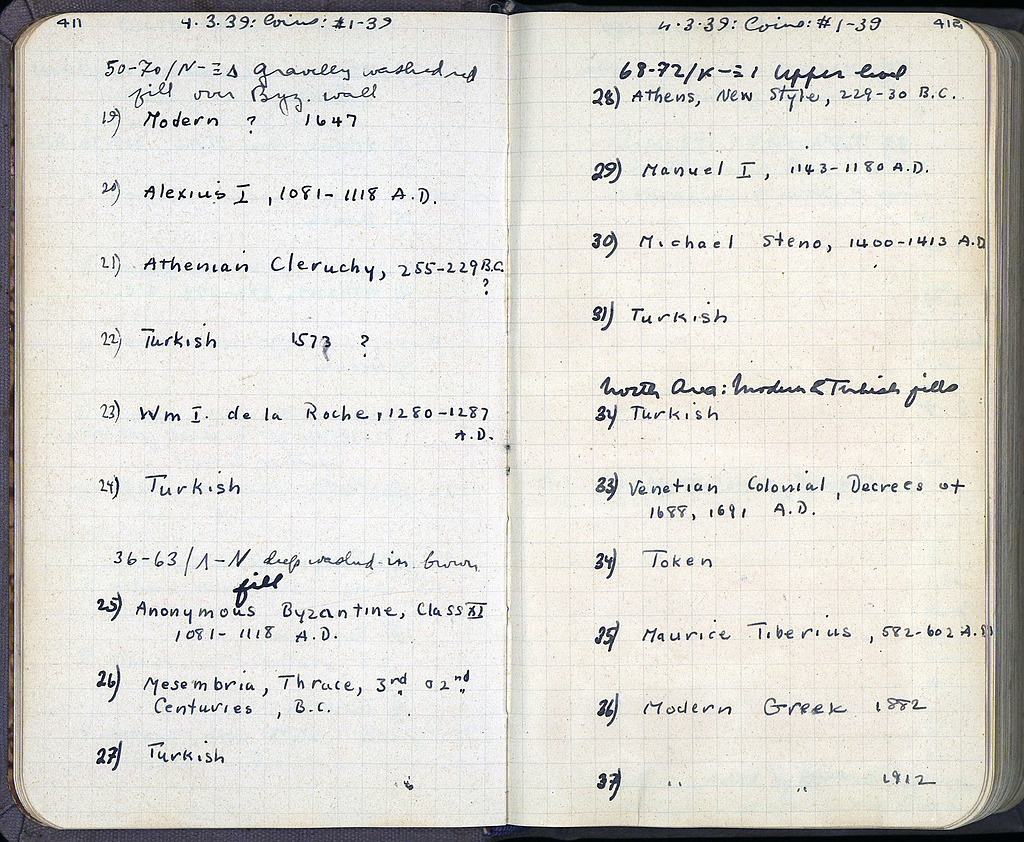 411 4.3.39: Coins: #1-39
50-70/Ν-ΞΔ gravelly washed red
fill over Byz. wall
19) Modern ? 1647
20) Alexius I, 1081-1118 A.D.
21) Athenian Cleruchy, 255-229 B.C.
?
22) Turkish 1573 ?
23) Wm I. de la Roche, 1280-1287
A.D.
24) Turkish
36-63/Λ-Ν deep washed-in brown
fill
25) Anonymous Byzantine, Class XI
1081-1118 A.D.
26) Mesembria, Thrace, 3rd 2nd
Centuries, B.C.
27) Turkish
4.3.39: Coins: #1-39 412
68-72/Κ-Ξ1 Upper level
28) Athens, New Style, 229-30 B.C.
29) Manuel I, 1143-1180 A.D.
30) Michael Steno, 1400-1413 A.D
31) Turkish
North Area: Modern & Turkish fills
34) Turkish
33) Venetian Colonial, Decrees of
1688, 1691 A.D.
34) Token
35) Maurice Tiberius, 582-602 A.D
36) Modern Greek 1882
37) " " 1912